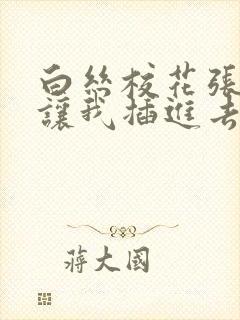 白絲校花張
讓我插進去
蔣大國